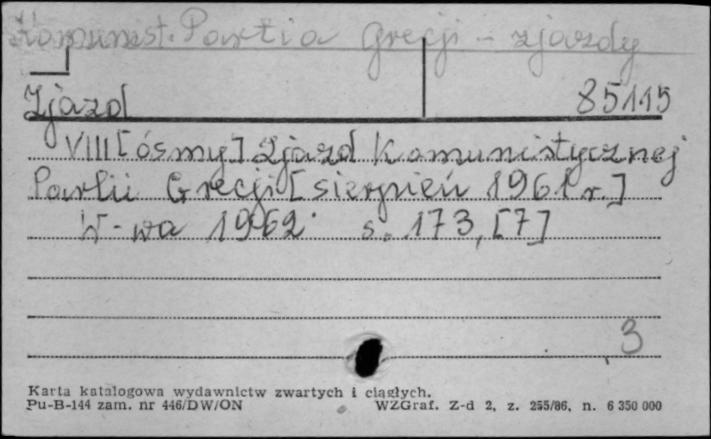 Komunist. Partia Grecji - zjazdy
Zjazd 85115
VIII [ósmy] Zjazd Komunistycznej
Partii Grecji [sierpień 1961 r.]
W-wa 1962 s. 173, [7]
3
Karta katalogowa wydawnictw zwartych i ciągłych.
Pu-B-144 zam. nr 446/DW/ON WZGraf. Z-d 2, z. 255/86, n. 6 350 000